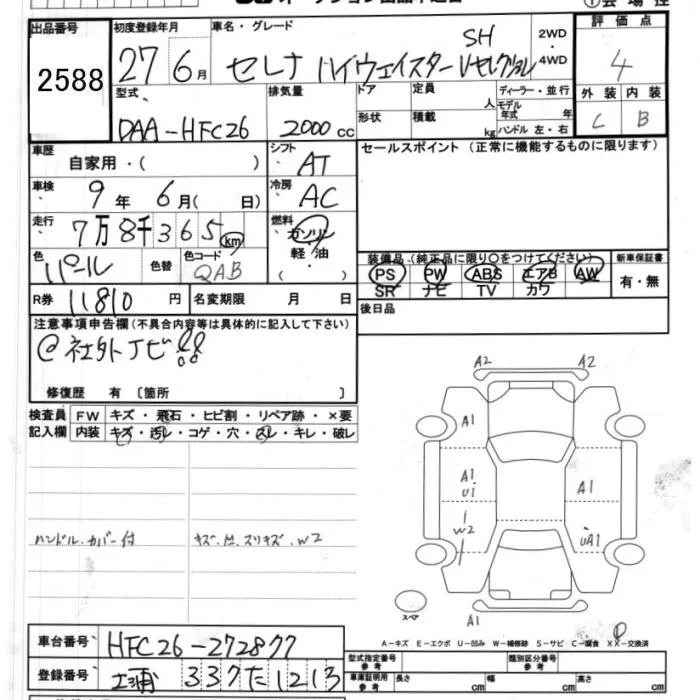 出品番号
2588
初度登録年月
27年 6月
車名・グレード
セレナ ハイウェイスター Vセレクション
SH
2WD
・
4WD
評価点
4
外装 内装
C B
型式
DAA-HFC26
排気量
2000 cc
ドア
定員
人
ディーラー・並行
モデル年式 年
形状
積載
kg
ハンドル 左・右
車歴
自家用・( )
シフト
AT
セールスポイント (正常に機能するものに限ります)
車検
9年 6月( 日)
冷房
AC
走行
7万8千365km
燃料
ガソリン
軽油
( )
色
パール
色替
色コード
QAB
装備品 (純正品に限り○をつけてください)
PS PW ABS エアB AW
SR ナビ TV カワ
新車保証書
有・無
R券 11810円
名変期限 月 日
後日品
注意事項申告欄(不具合内容等は具体的に記入して下さい)
@社外ナビ!!
修復歴 有 〔箇所 〕
検査員
記入欄
FW キズ・飛石・ヒビ割・リペア跡・×要
内装 キズ・汚レ・コゲ・穴・スレ・キレ・破レ
ハンドル.カバー付
キズ.凹.スリキズ.W2
A2 A2
A1
A1
U1
A1
W2
UA1
A1
スペア
A-キズ E-エクボ U-凹み W-補修跡 S-サビ C-腐食 XX-交換済
車台番号 HFC26-272877
登録番号 土浦 337 た 1213
型式指定番号
参考
類別区分番号
参考
車庫証明用
参考
長さ cm
幅 cm
高さ cm